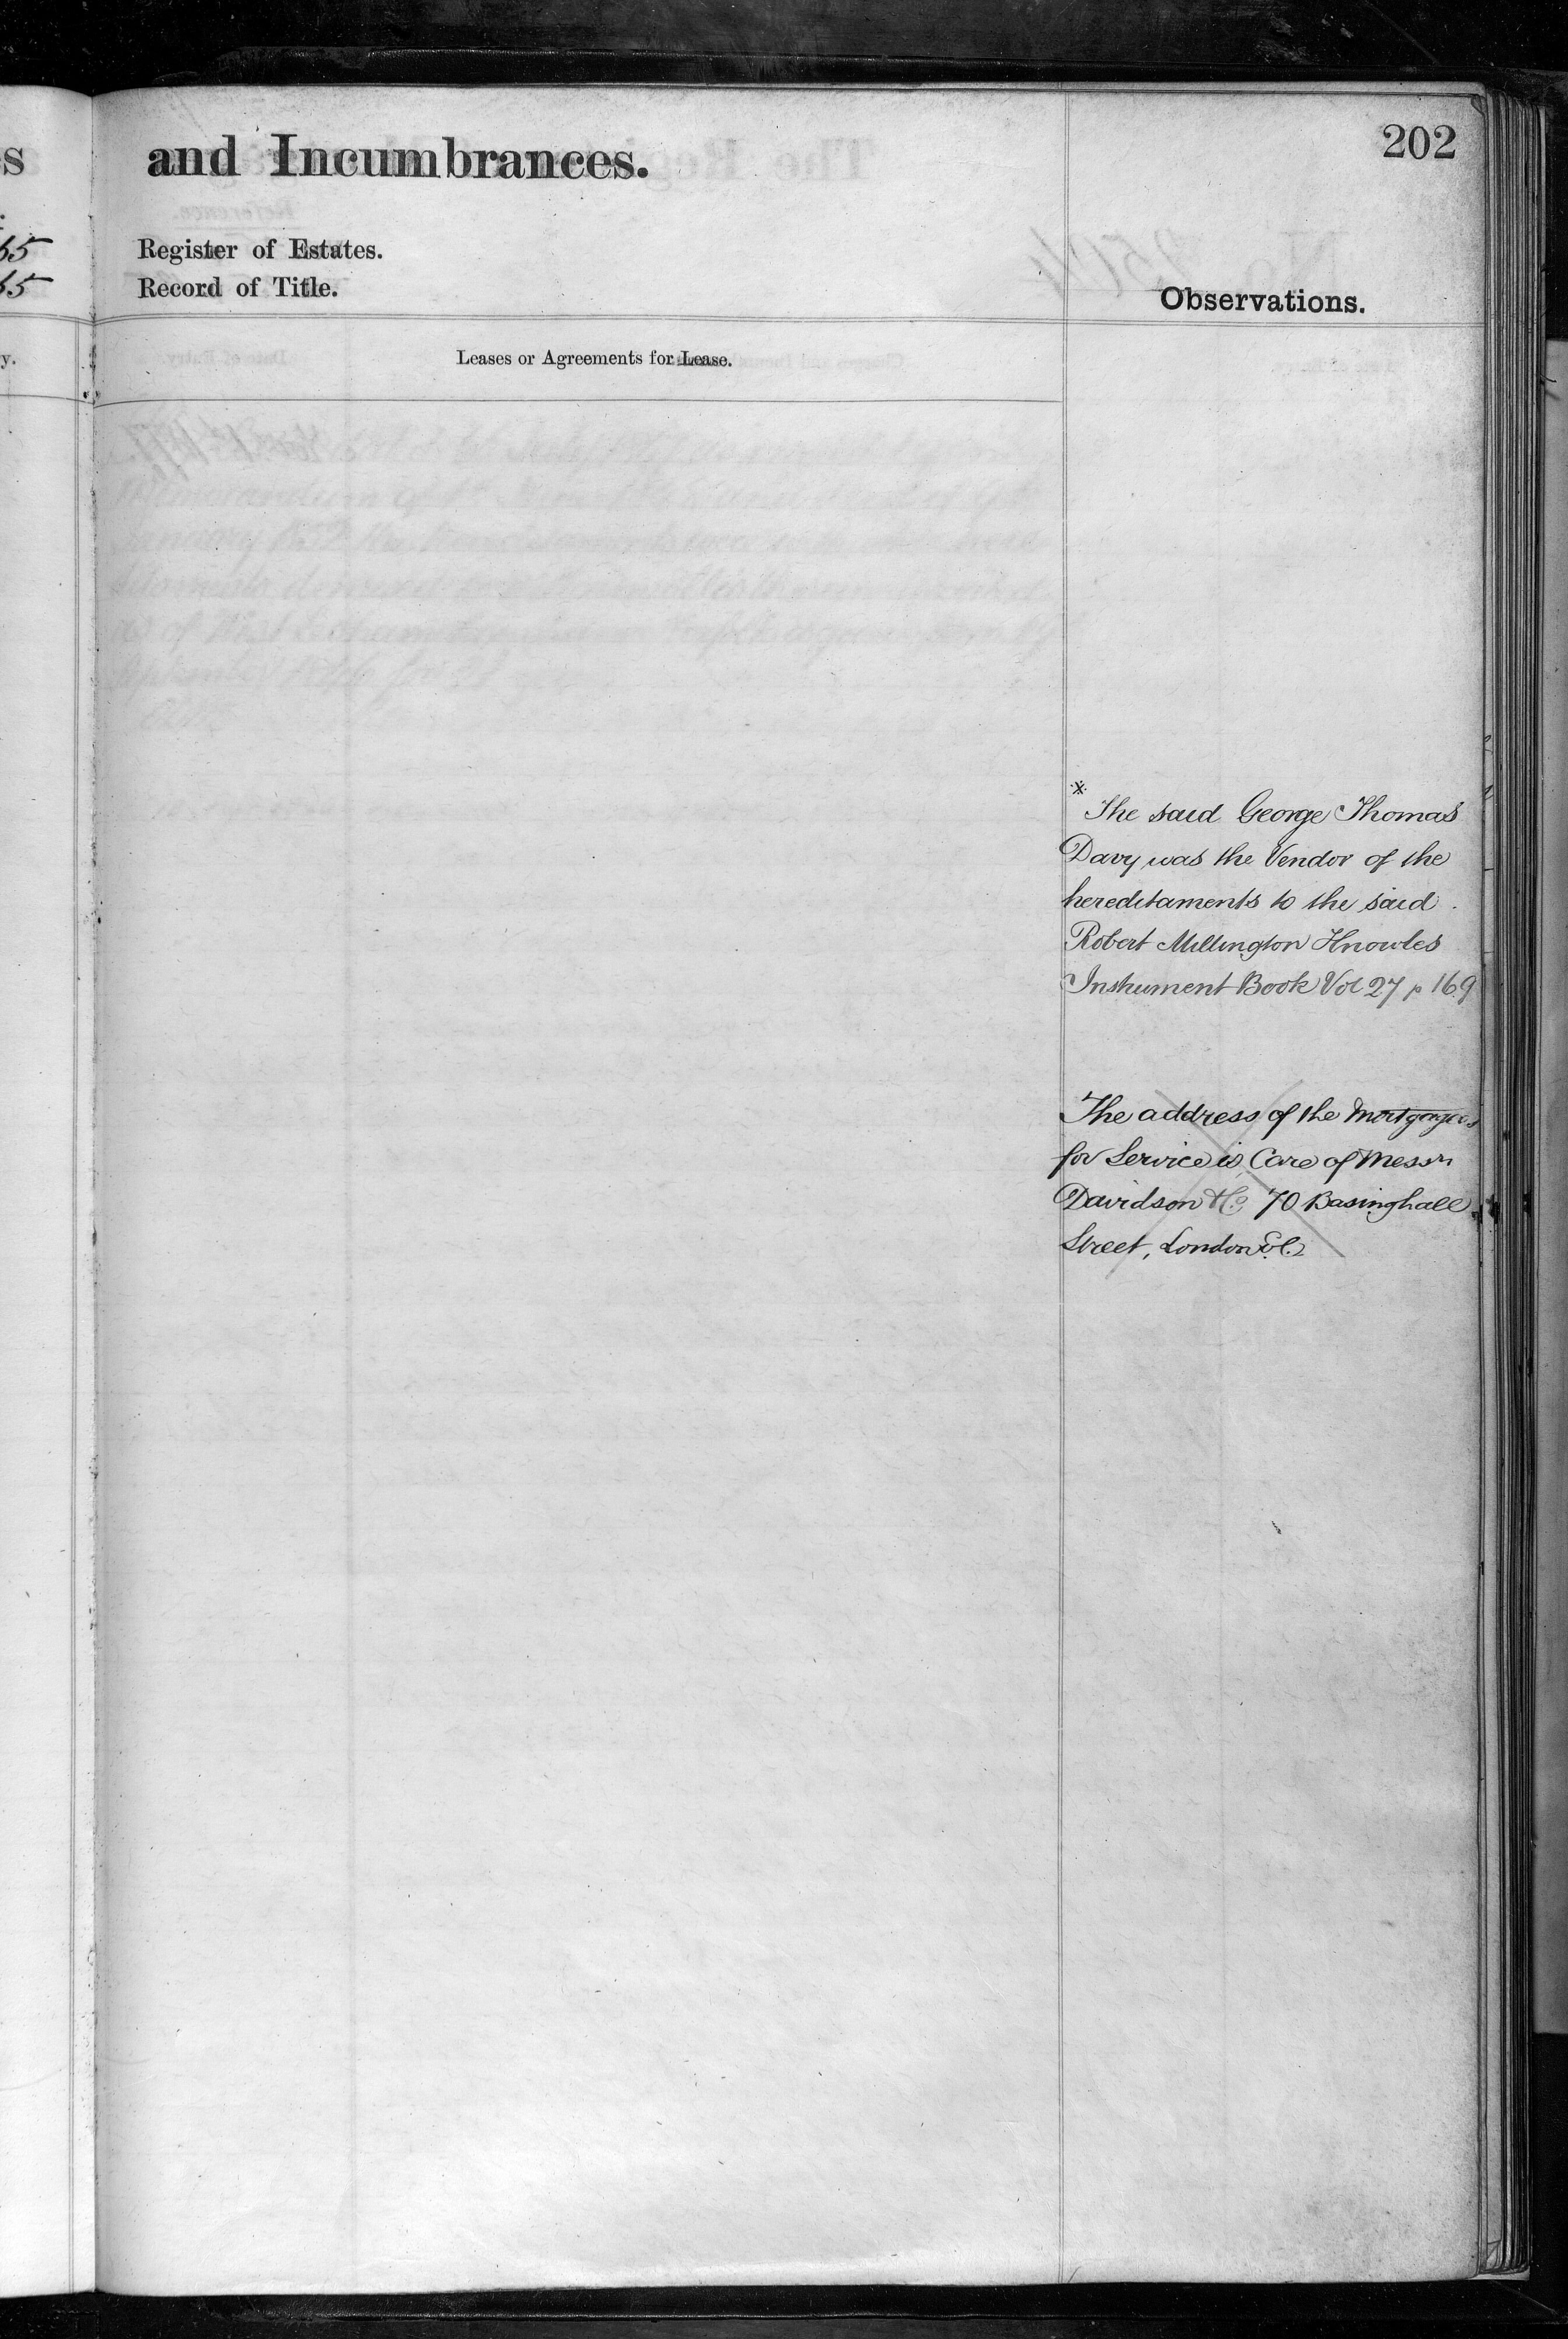 and Incumbrances.
202
Register of Estates.
Record of Title.
Observations.
Leases or Agreements for Lease.
x
The said George Thomas
Davy was the Vendor of the
hereditaments to the said
Robert Millington Knowles
Instrument Book Vol 27 p 169
The address of the Mortgagees
for Service is Care of Messrs
Davidson & Co 70 Basinghall
Street, London E.C.